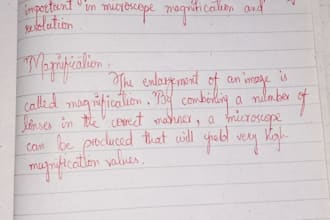 important in microscope magnification and
resolution
Magnification.
The enlargement of an image is
called magnification. By combining a number of
lenses in the correct manner, a microscope
can be produced that will yield very high
magnification values.